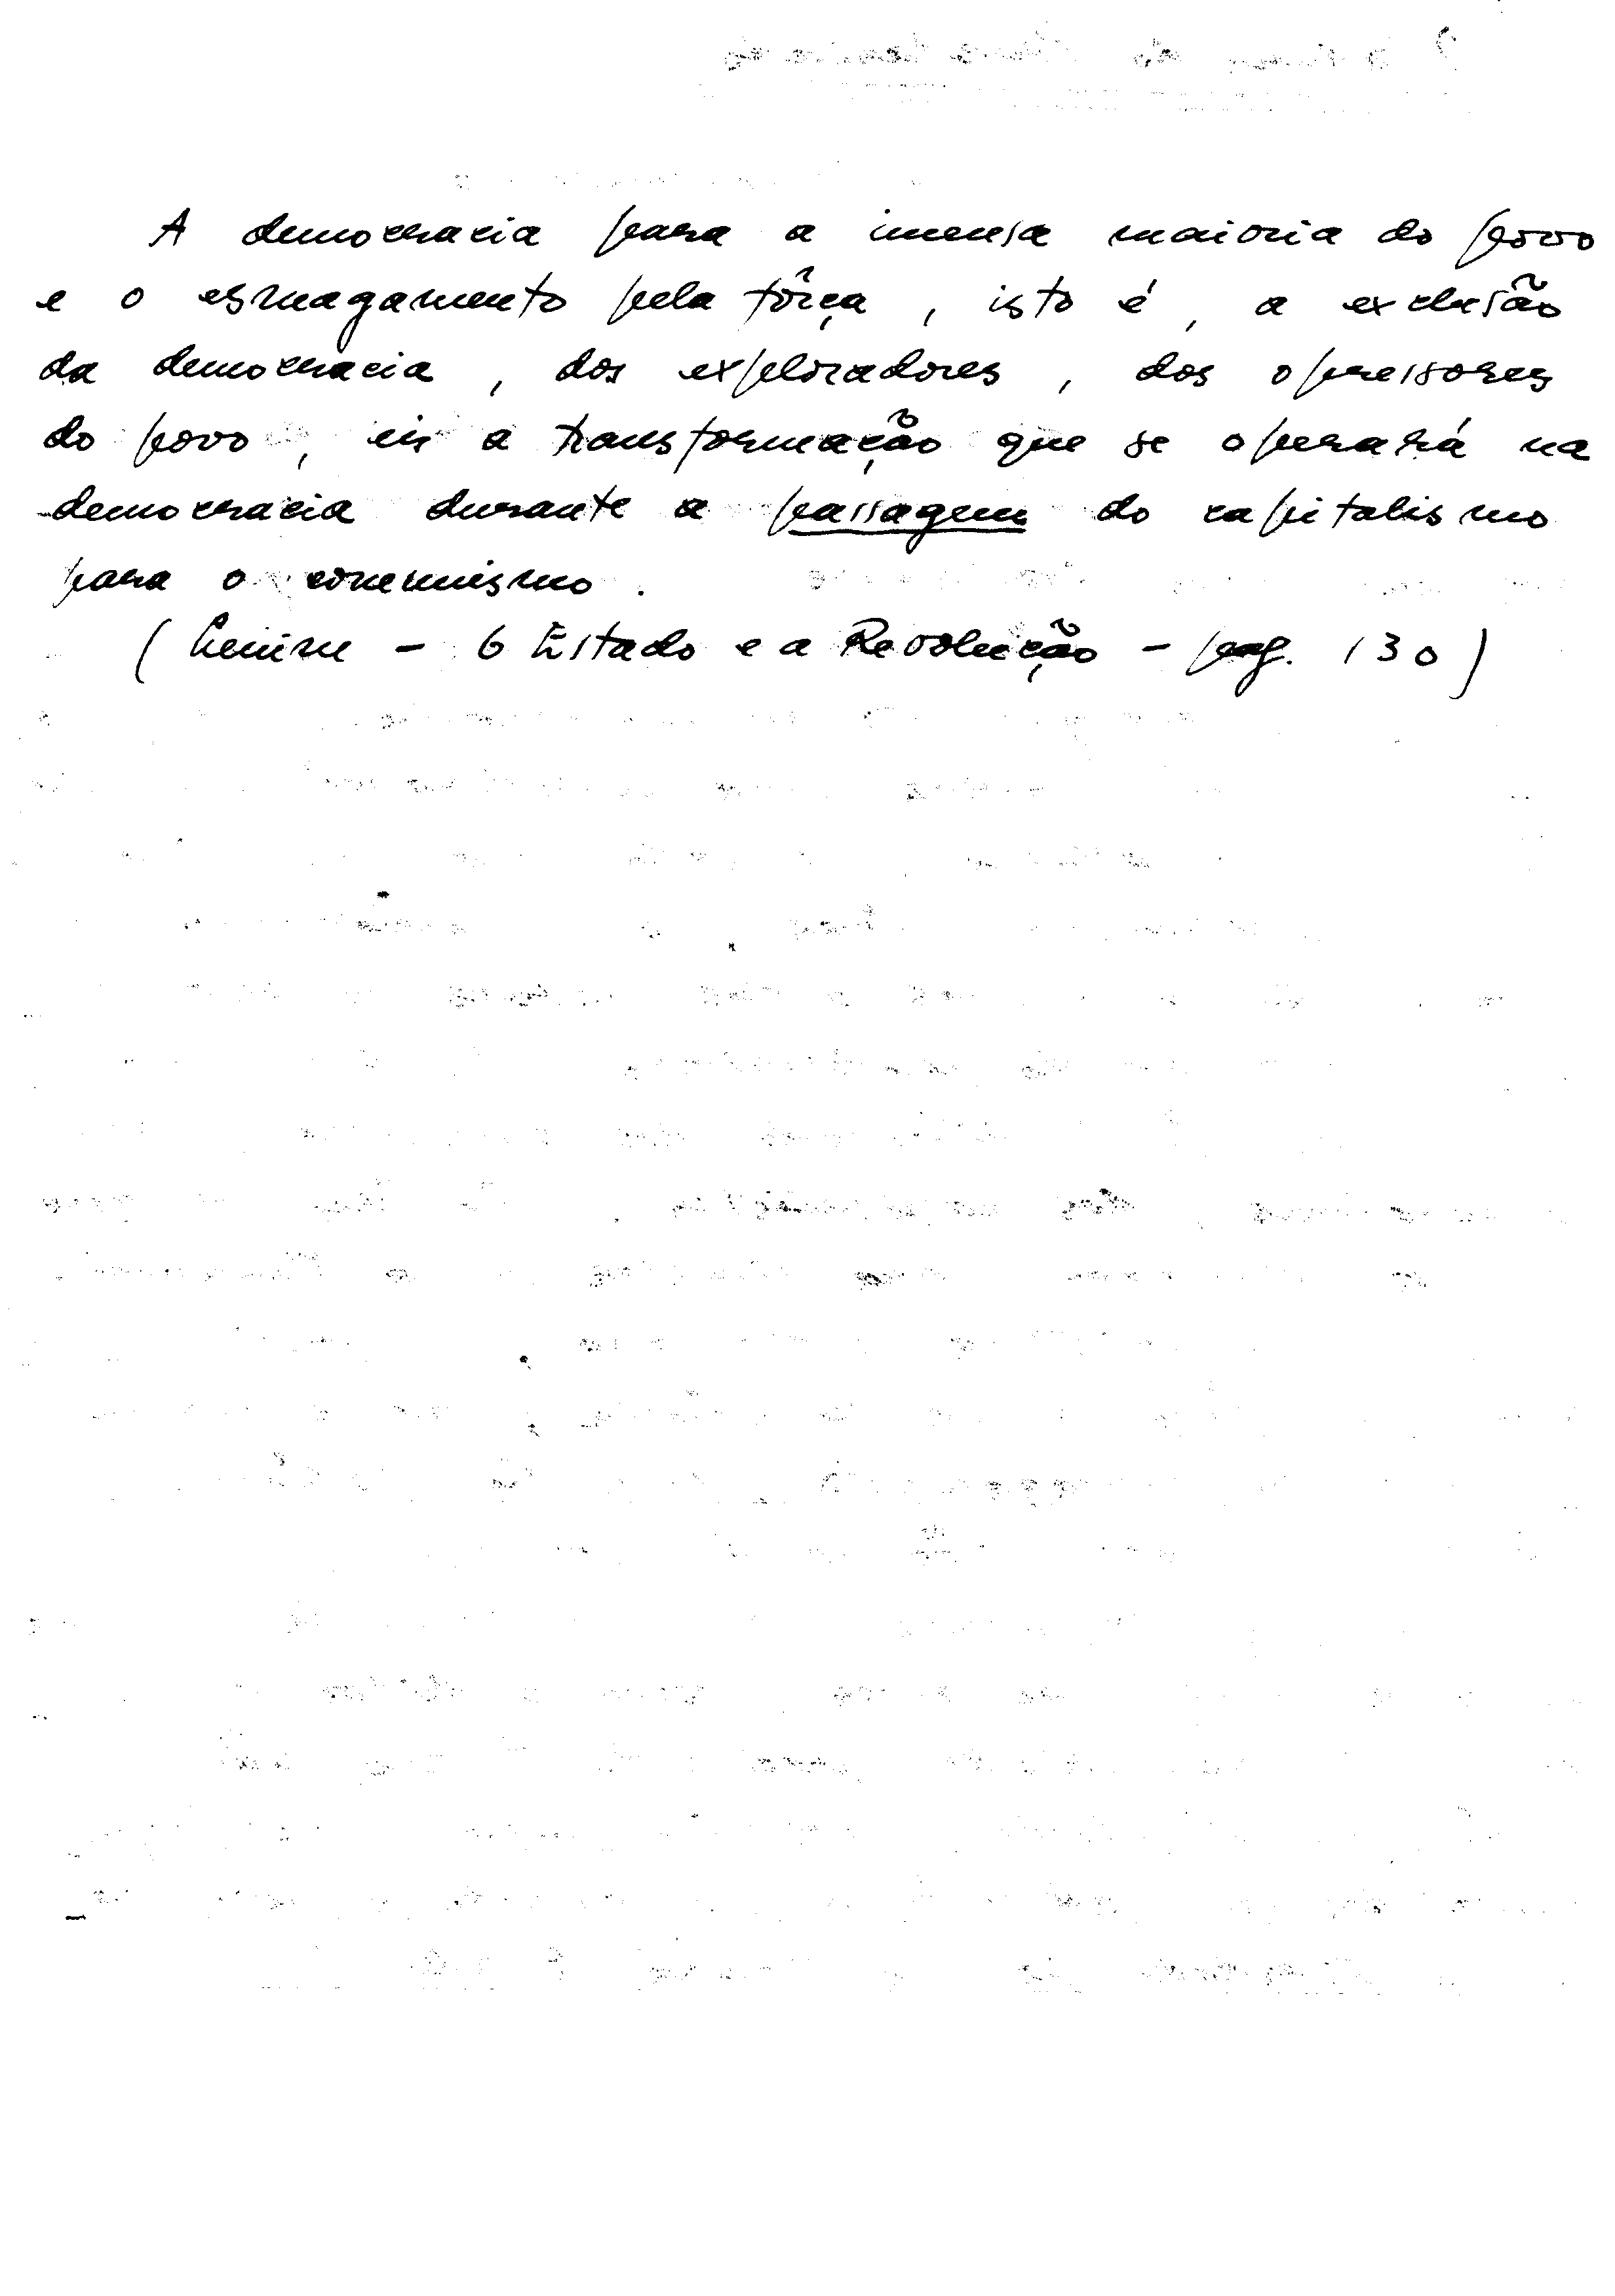 A democracia para a imensa maioria do povo
e o esmagamento pela fôrça, isto é, a exclusão
da democracia, dos exploradores, dos opressores
do povo, eis a transformação que se operará na
democracia durante a passagem do capitalismo
para o comunismo.
(Lenine - O Estado e a Revolução - pag. 130)